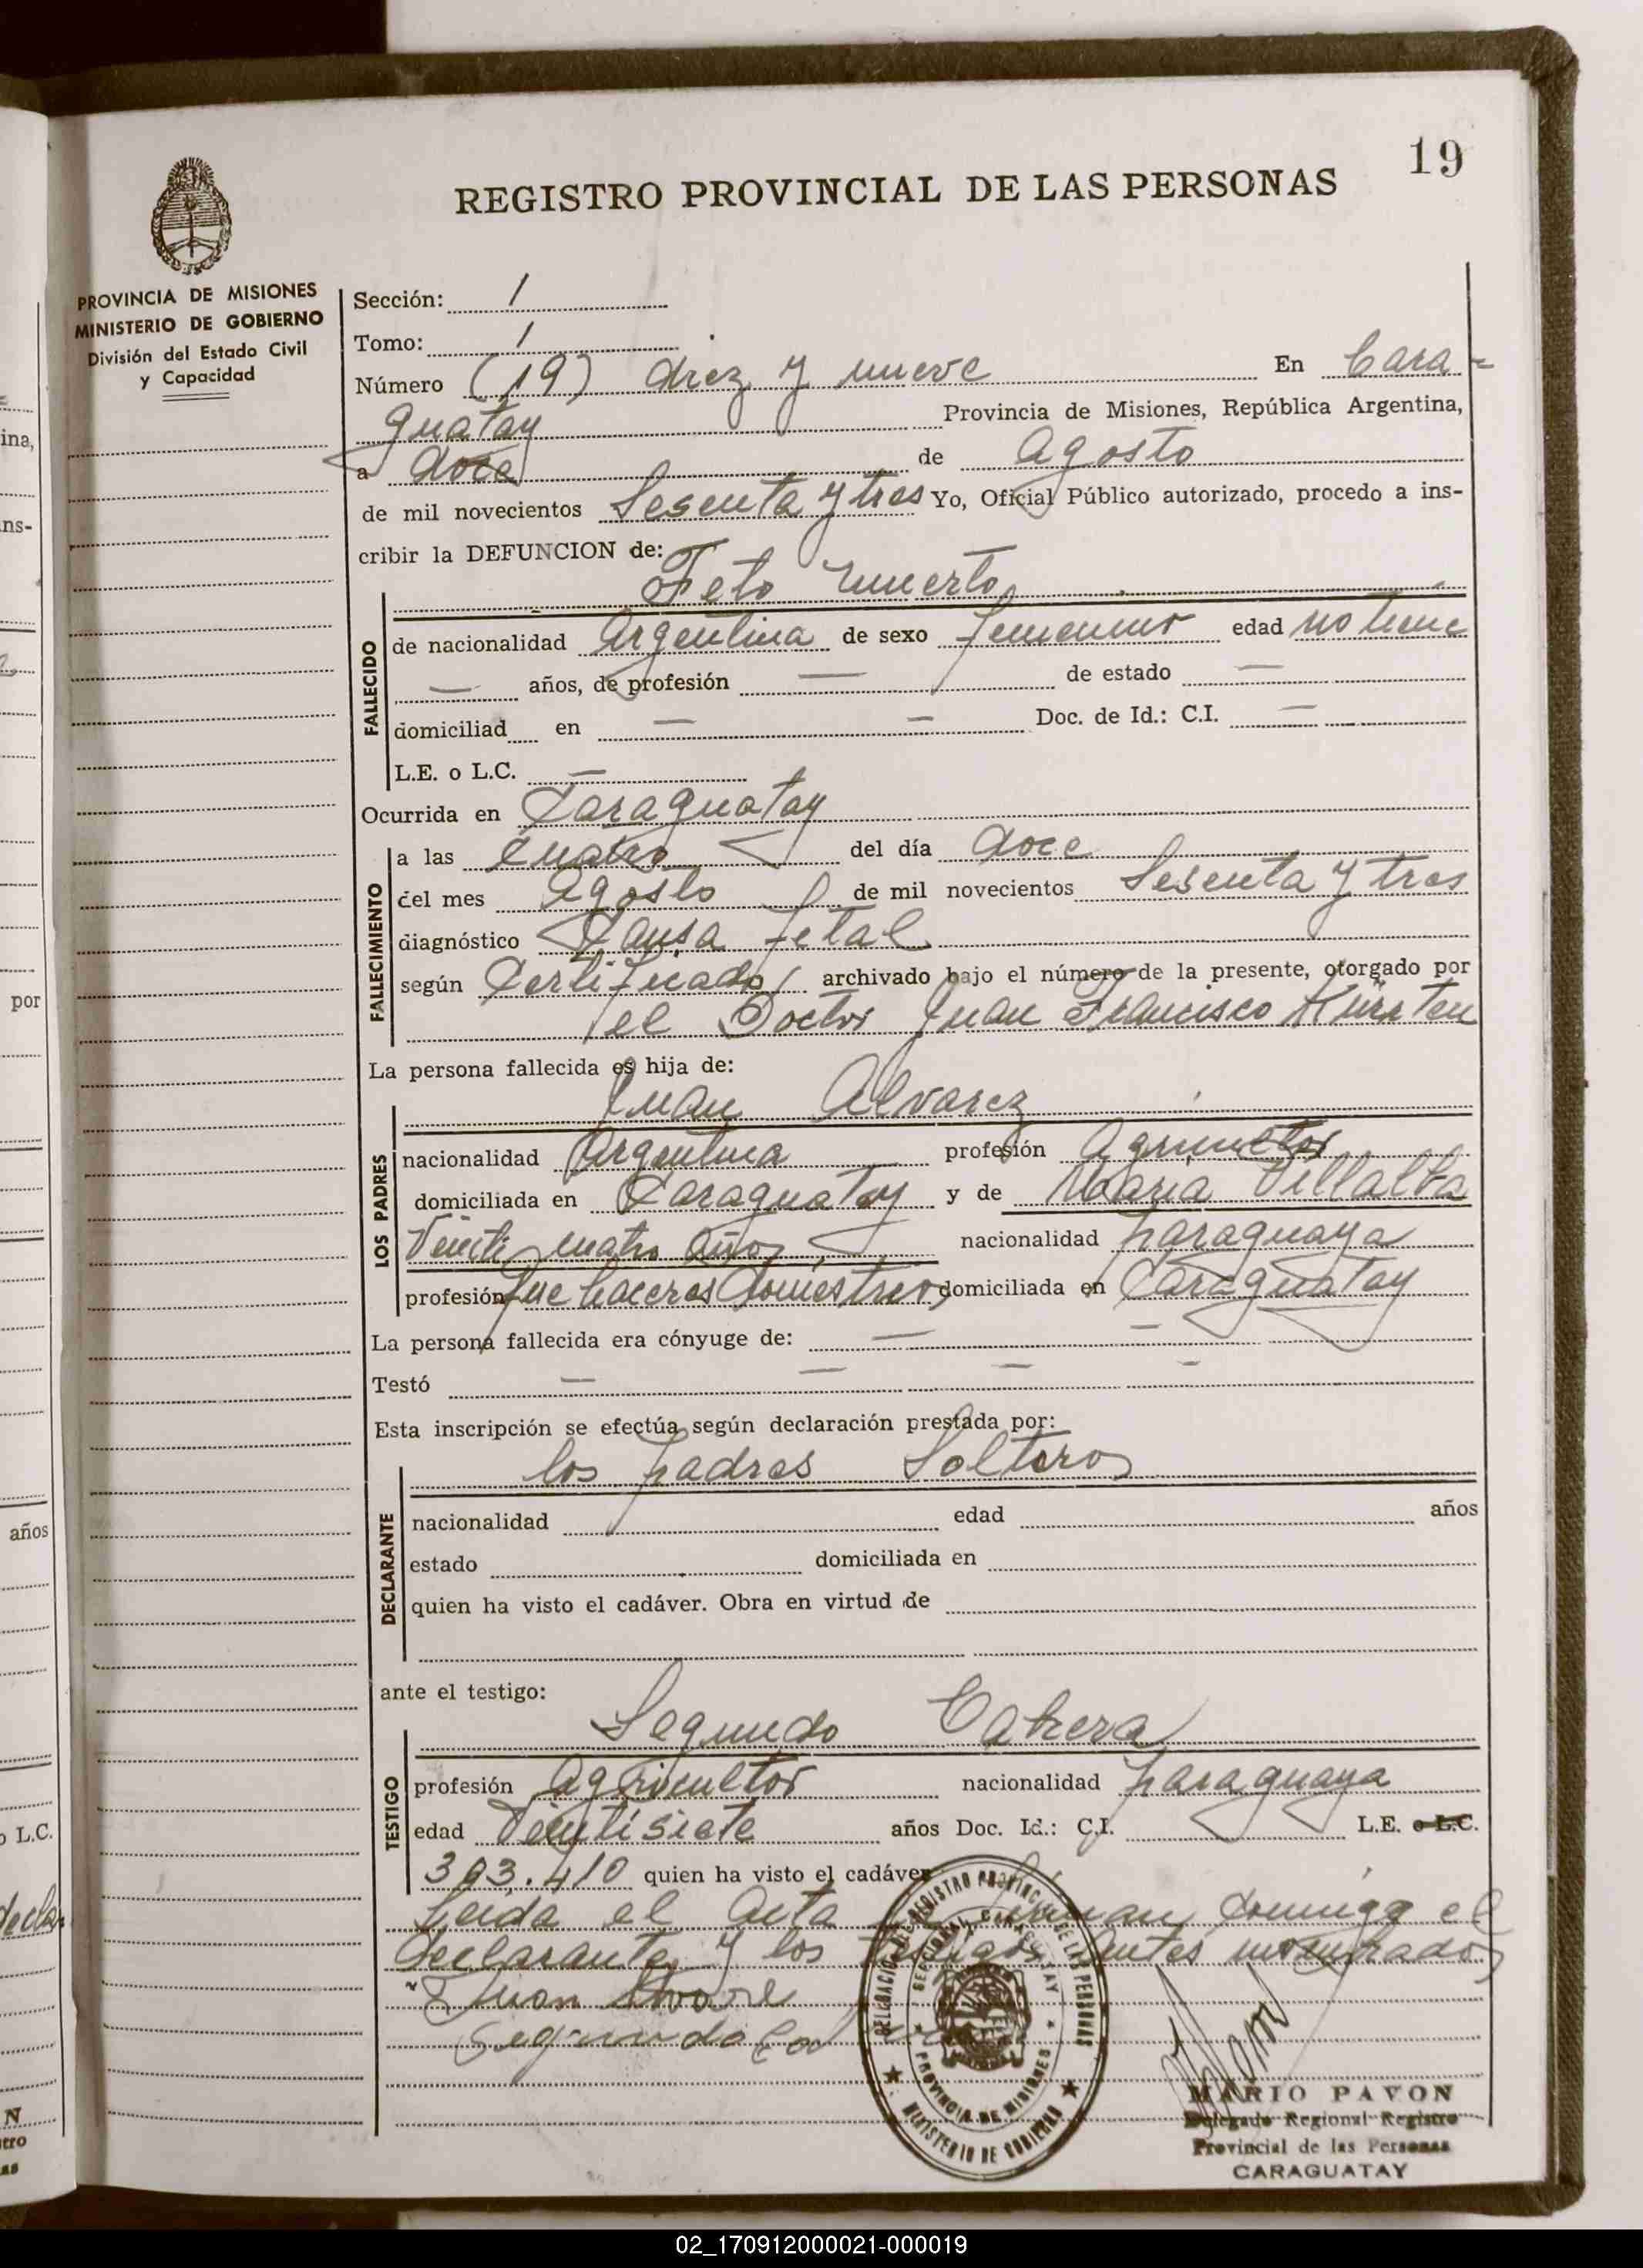 19
REGISTRO PROVINCIAL DE LAS PERSONAS
PROVINCIA DE MISIONES
MINISTERIO DE GOBIERNO
División del Estado Civil
y Capacidad
Sección: 1
Tomo: 1
Número (19) diez y nueve En Cara-
guatay Provincia de Misiones, República Argentina,
a doce de Agosto
de mil novecientos Sesenta y tres Yo, Oficial Público autorizado, procedo a ins-
cribir la DEFUNCION de:
Feto muerto
FALLECIDO
de nacionalidad Argentina de sexo femenino edad no tiene
— años, de profesión — de estado —
domiciliad en — — Doc. de Id.: C.I. —
L.E. o L.C. —
Ocurrida en Caraguatay
FALLECIMIENTO
a las cuatro del día doce
del mes Agosto de mil novecientos Sesenta y tres
diagnóstico Causa fetal
según Certificado archivado bajo el número de la presente, otorgado por
el Doctor Juan Francisco
La persona fallecida es hija de:
Juan Alvarez
LOS PADRES
nacionalidad Argentina profesión Agricultor
domiciliada en Caraguatay y de Maria Villalba
Veinti cuatro años nacionalidad paraguaya
profesión Que haceres domestico domiciliada en Caraguatay
La persona fallecida era cónyuge de: — —
Testó — — — —
Esta inscripción se efectúa según declaración prestada por:
los padres Solteros
DECLARANTE
nacionalidad edad años
estado domiciliada en
quien ha visto el cadáver. Obra en virtud de
ante el testigo:
Segundo Cabrera
TESTIGO
profesión Agricultor nacionalidad paraguaya
edad Veintisiete años Doc. Id.: C.I. L.E. o L.C.
393.410 quien ha visto el cadáver
Leida el Acta conmigo el
declarante y los testigos antes mombrados
Juan
Segundo
DELEGACION DEL REGISTRO PROVINCIAL DE LAS PERSONAS
SECCIONAL CARAGUATAY
PROVINCIA DE MISIONES
MINISTERIO DE GOBIERNO
MARIO PAVON
Delegado Regional Registro
Provincial de las Personas
CARAGUATAY
ina,
ns-
por
años
o L.C.
declar
N
tro
as
02_170912000021-000019